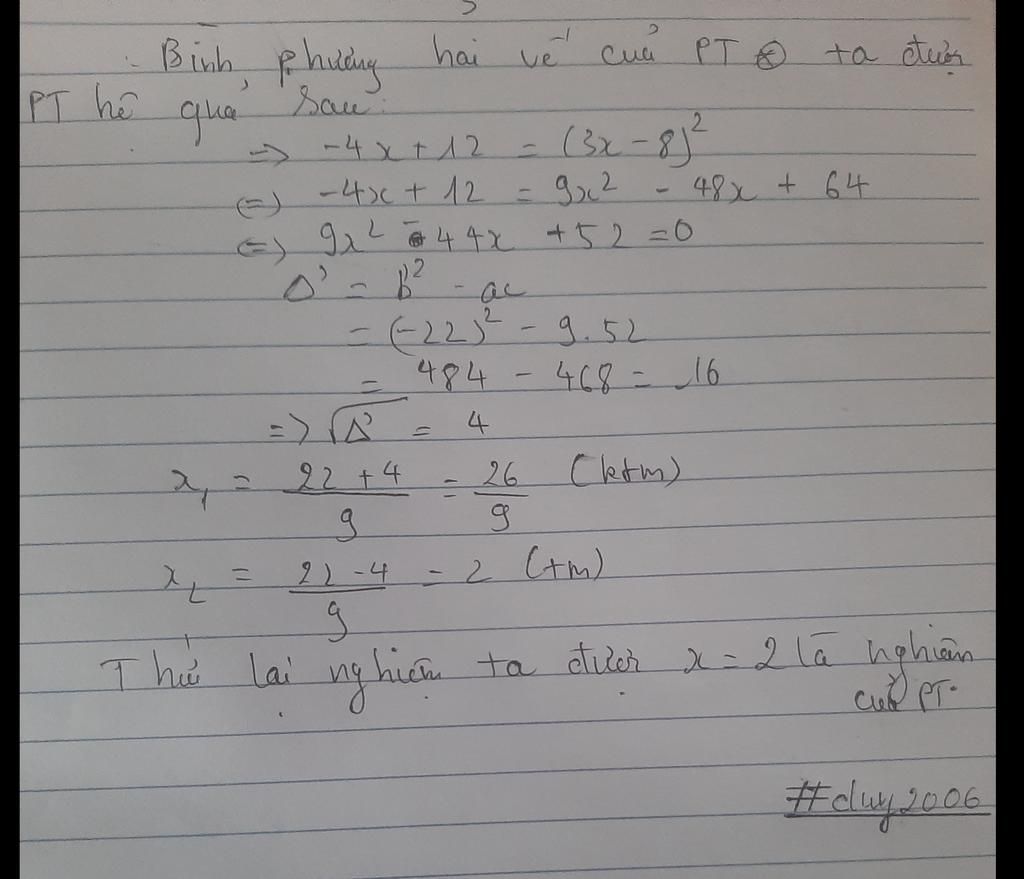 Bình phương hai vế của PT (*) ta được
PT hệ quả sau:
=> -4x + 12 = (3x - 8)²
<=> -4x + 12 = 9x² - 48x + 64
<=> 9x² - 44x + 52 = 0
Δ' = b'² - ac
= (-22)² - 9.52
= 484 - 468 = 16
=> √Δ' = 4
x₁ = (22 + 4)/9 = 26/9 (ktm)
x₂ = (22 - 4)/9 = 2 (tm)
Thử lại nghiệm ta được x = 2 là nghiệm
của PT.
#duy2006